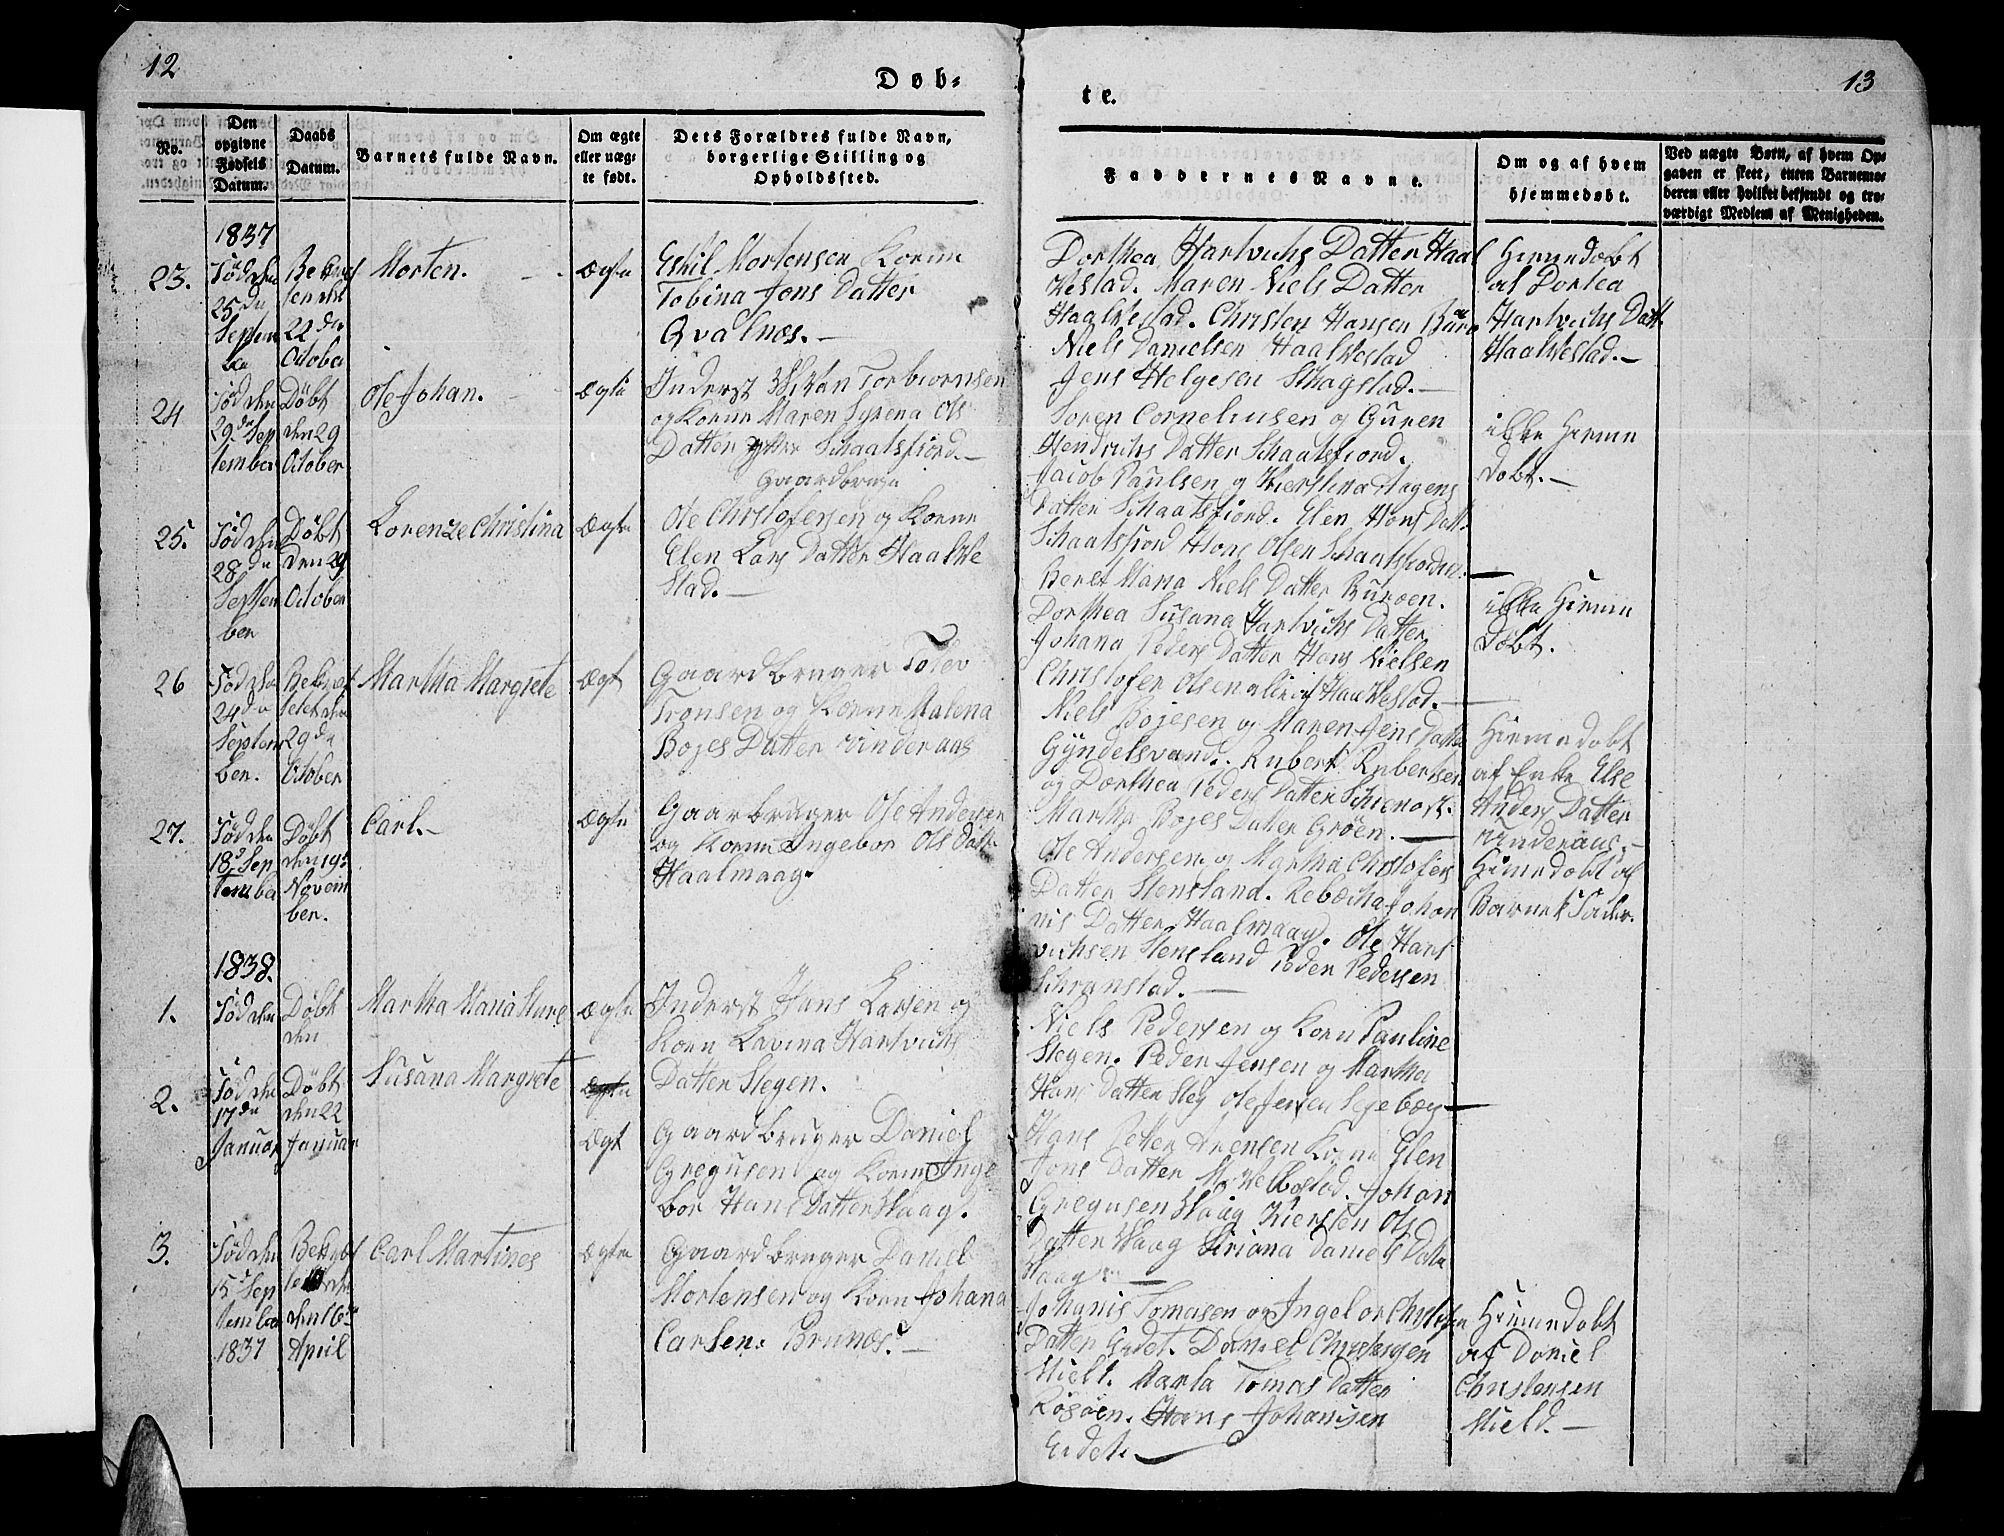 12
Døb-
te.
13
No.
Den opgivne Fødsels Datum.
Daabs Datum.
Barnets fulde Navn.
Om ægte eller uægte født.
Dets Forældres fulde Navn, borgerlige Stilling og Opholdssted.
Faddernes Navne.
Om og af hvem hjemmedøbt.
Ved uægte Børn, af hvem Opgaven er skeet, enten Barnemoderen eller hvilket bekjendt og troværdigt Medlem af Menigheden.
1837
23.
Fød den
25 de
Septem
ber
22 den
October
Morten.
Ægte
Eskil Mortensen Konne
Tobina Jons Datter
Qvalnæs.
Dorthea Hartvichs Datter Haal
Vestad. Maren Niels Datter
Haalvestad. Christen Hansen
Niels Danielsen Haalvestad
Jens Helgesen Skagstad.
Hiemedøbt
af Dortea
Hartvichs Datt.
Haalvestad.
24
Fød den
29 de Sep
tember
Døbt
den 29
October
Ole Johan.
Ægte
Inderst Torbiornsen
og Konne Maren Syrena Ols
Datter Schaatsfiord.
Soren Corneliusen og Guren
Hendrichs Datter Schaatsfiord.
Jacob Paulsen og Kierstina Aagens
Datter Schaatsfiord. Elen Hans Datt.
Schaatsfiord Hans Olsen Schaatsfiorden.
ikke Hieme
døbt.
25.
Fød den
28 de
Septem
ber
Døbt
den 29
October
Lorenze Christina
Ægte
Gaardbruger
Ole Christofersen og Konne
Elen Lars Datter Haalve
stad.
Beret Maria Niels Datter Burøen.
Dorthea Susana Hartvichs Datter
Johana Peders Datter Hans Nielsen
Christofer Olsen Haalvestad.
ikke Hieme
Døbt.
26
Fød den
24 de
Septem
ber.
29 de
October
Martha Margrete
Ægt
Gaardbruger Tolev
Tronsen og Konne Malena
Bojes Datter Vinderaas
Niels Bojesen og Maren Jens Datter
Gyndelsvand. Rubert Rubertsen
og Dorthea Peders Datter
Martha Bojes Datter Grøen.
Hiemedøbt
af Enke Else
Anders Datter
Vinderaas.
27.
Fød den
18 Sep
tember
Døbt
den 19
Novem
ber.
Carl.
Ægte
Gaarbruger Ole Andersen
og Konne Ingebor Ols Datt.
Haalmaag.
Ole Andersen og Martha Christofers
Datter Stensland. Rebecka Johan
nis Datter Haalmaag. Ole Hart
vichsen Stensland Peder Pedersen
Schranstad.
Hiemedøbt af
Barnets Fader.
1838.
1.
Fød den
Døbt
den
Martha Maria
Ægte
Inderst Hans Larsen og
Konn Lavina Hartvichs
Datter Stegen.
Niels Pedersen og Kone Pauline
Stegen. Peder Jensen og Martha
Hans Datter Steg Ole Jensen
2.
Fød den
17 de
Januar
Døbt
den 22
Januar
Susana Margrete
Ægte
Ægt
Gaardbruger Daniel
Gregusen og Konne Inge
bor Hans Datter Haag.
Hans Petter Konne Elen
Jons Datter Johan
Gregusen Haag Kiersten Ols
Datter Haag Siriana Daniels Datter
Haag
3.
Fød den
15 Sep
tember
1837
den 16
April
Carl Martines
Ægte
Gaardbruger Daniel
Mortensen og Konn Johana
Carlsen. Brunæs.
Johanis Tomasen og Ingebor Christofer
Datter Eidet. Daniel Christensen
Mield. Marta Tomas Datter
Røsøen. Hans Johanisen
Eidet.
Hiemedøbt
af Daniel
Christensen
Mield.